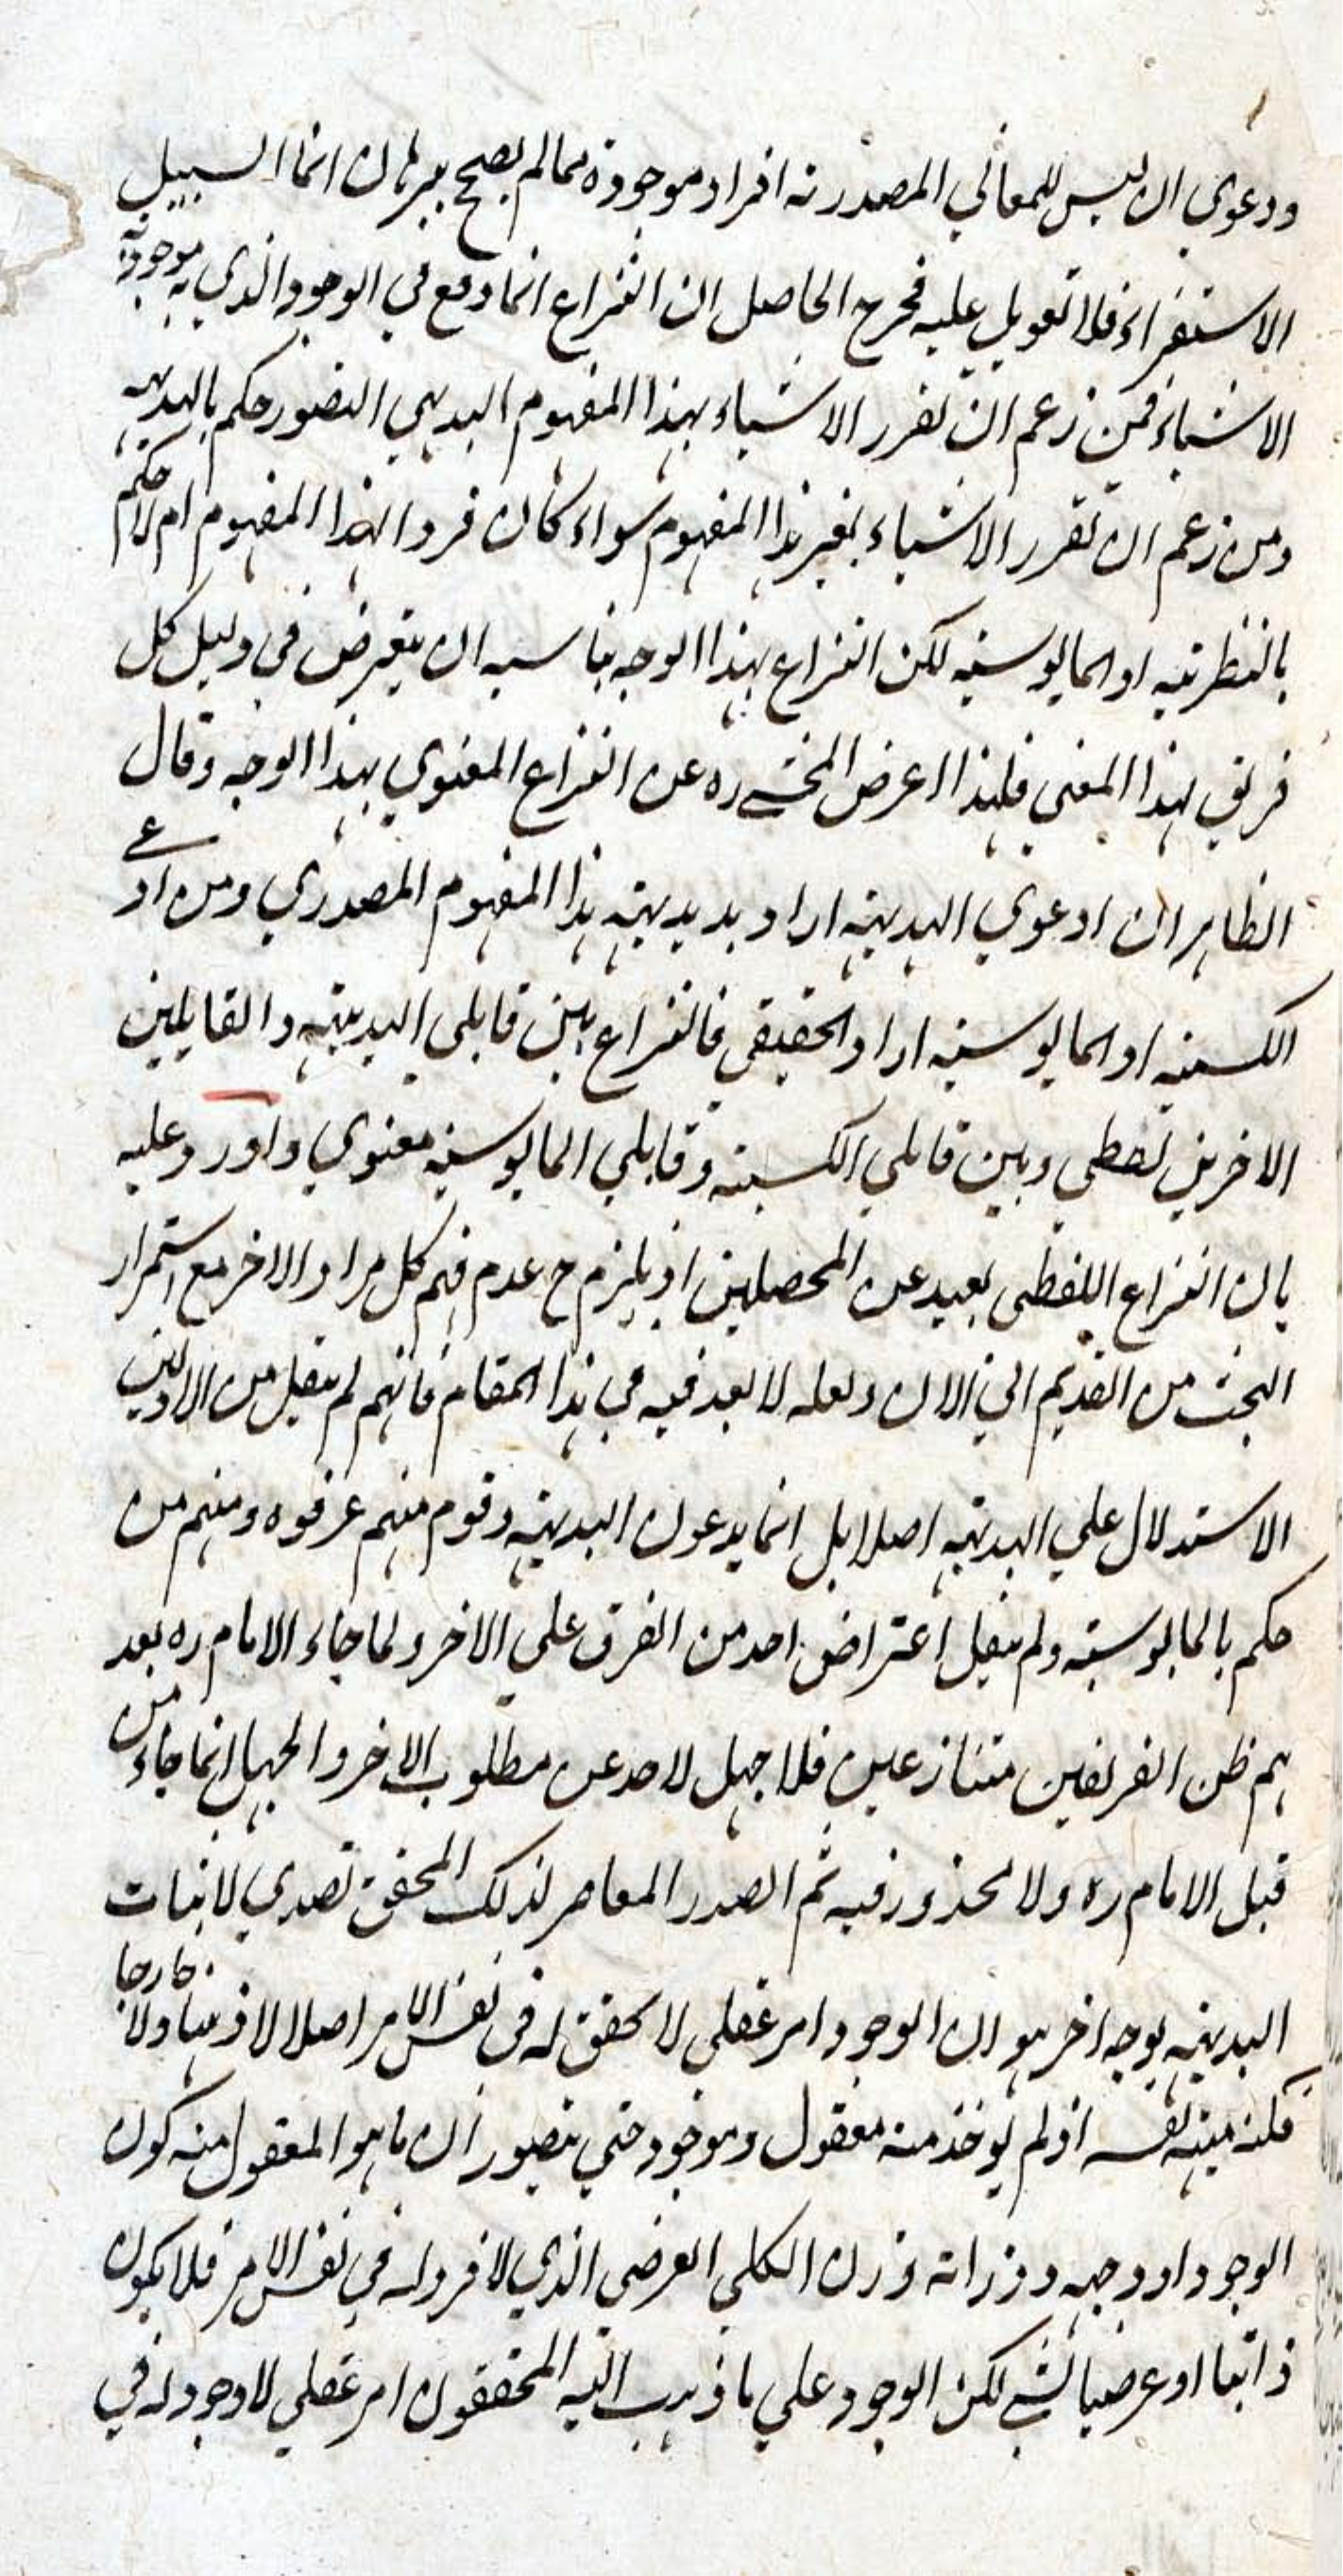 ودعوي ان ليس للمعاني المصدرية افراد موجودة مما لم يصح ببرهان انما السبيل
الاستقراء فلا تعويل عليه فخرج الحاصل ان النزاع انما وقع في الوجود الذي به موجودية
الاشياء فمن زعم ان تقرر الاشياء بهذا المفهوم البديهي التصور حكم بالبديهية
ومن زعم ان تقرر الاشياء بغير هذا المفهوم سواء كان فردا لهذا المفهوم ام لا حكم
بالنظرية او المايوسية لكن النزاع بهذا الوجه يناسبه ان يتعرض في دليل كل
فريق لهذا المعني فلهذا اعرض المحشي ره عن النزاع المعنوي بهذا الوجه وقال
الظاهر ان ادعوي البديهية اراد بديهية هذا المفهوم المصدري ومن ادعي
الكسبية او المايوسية اراد الحقيقي فالنزاع بين قايلي البديهية والقايلين
الاخرين لفظي وبين قايلي الكسبية وقايلي المايوسية معنوي واورد عليه
بان النزاع اللفظي بعيد عن المحصلين اذ يلزم ح عدم فهم كل مراد الاخر مع استمرار
البحث من القديم الي الان ولعله لا بعد فيه في هذا المقام فانهم لم ينقل من الاولين
الاستدلال علي البديهية اصلا بل انما يدعون البديهية وقوم منهم عرفوه ومنهم من
حكم بالمايوسية ولم ينقل اعتراض احد من الفرق علي الاخر ولما جاء الامام ره بعد
هم ظن الفريقين متنازعين فلا جهل لاحد عن مطلوب الاخر والجهل انما جاء من
قبل الامام ره ولا محذور فيه ثم الصدر المعاصر لذلك المحقق تصدي لاثبات
البديهية بوجه اخر هو ان الوجود امر عقلي لا تحقق له في نفس الامر اصلا لا ذهنا ولا خارجا
فكنه نفسه اذ لم يوخذ منه معقول وموجود حتي يتصور ان ما هو المعقول منه كون
الوجود او وجهه ووزانه وزان الكلي العرضي الذي لا فرد له في نفس الامر فلا يكون
ذاتيا او عرضيا لشي لكن الوجود علي ما ذهب اليه المحققون امر عقلي لا وجود له في